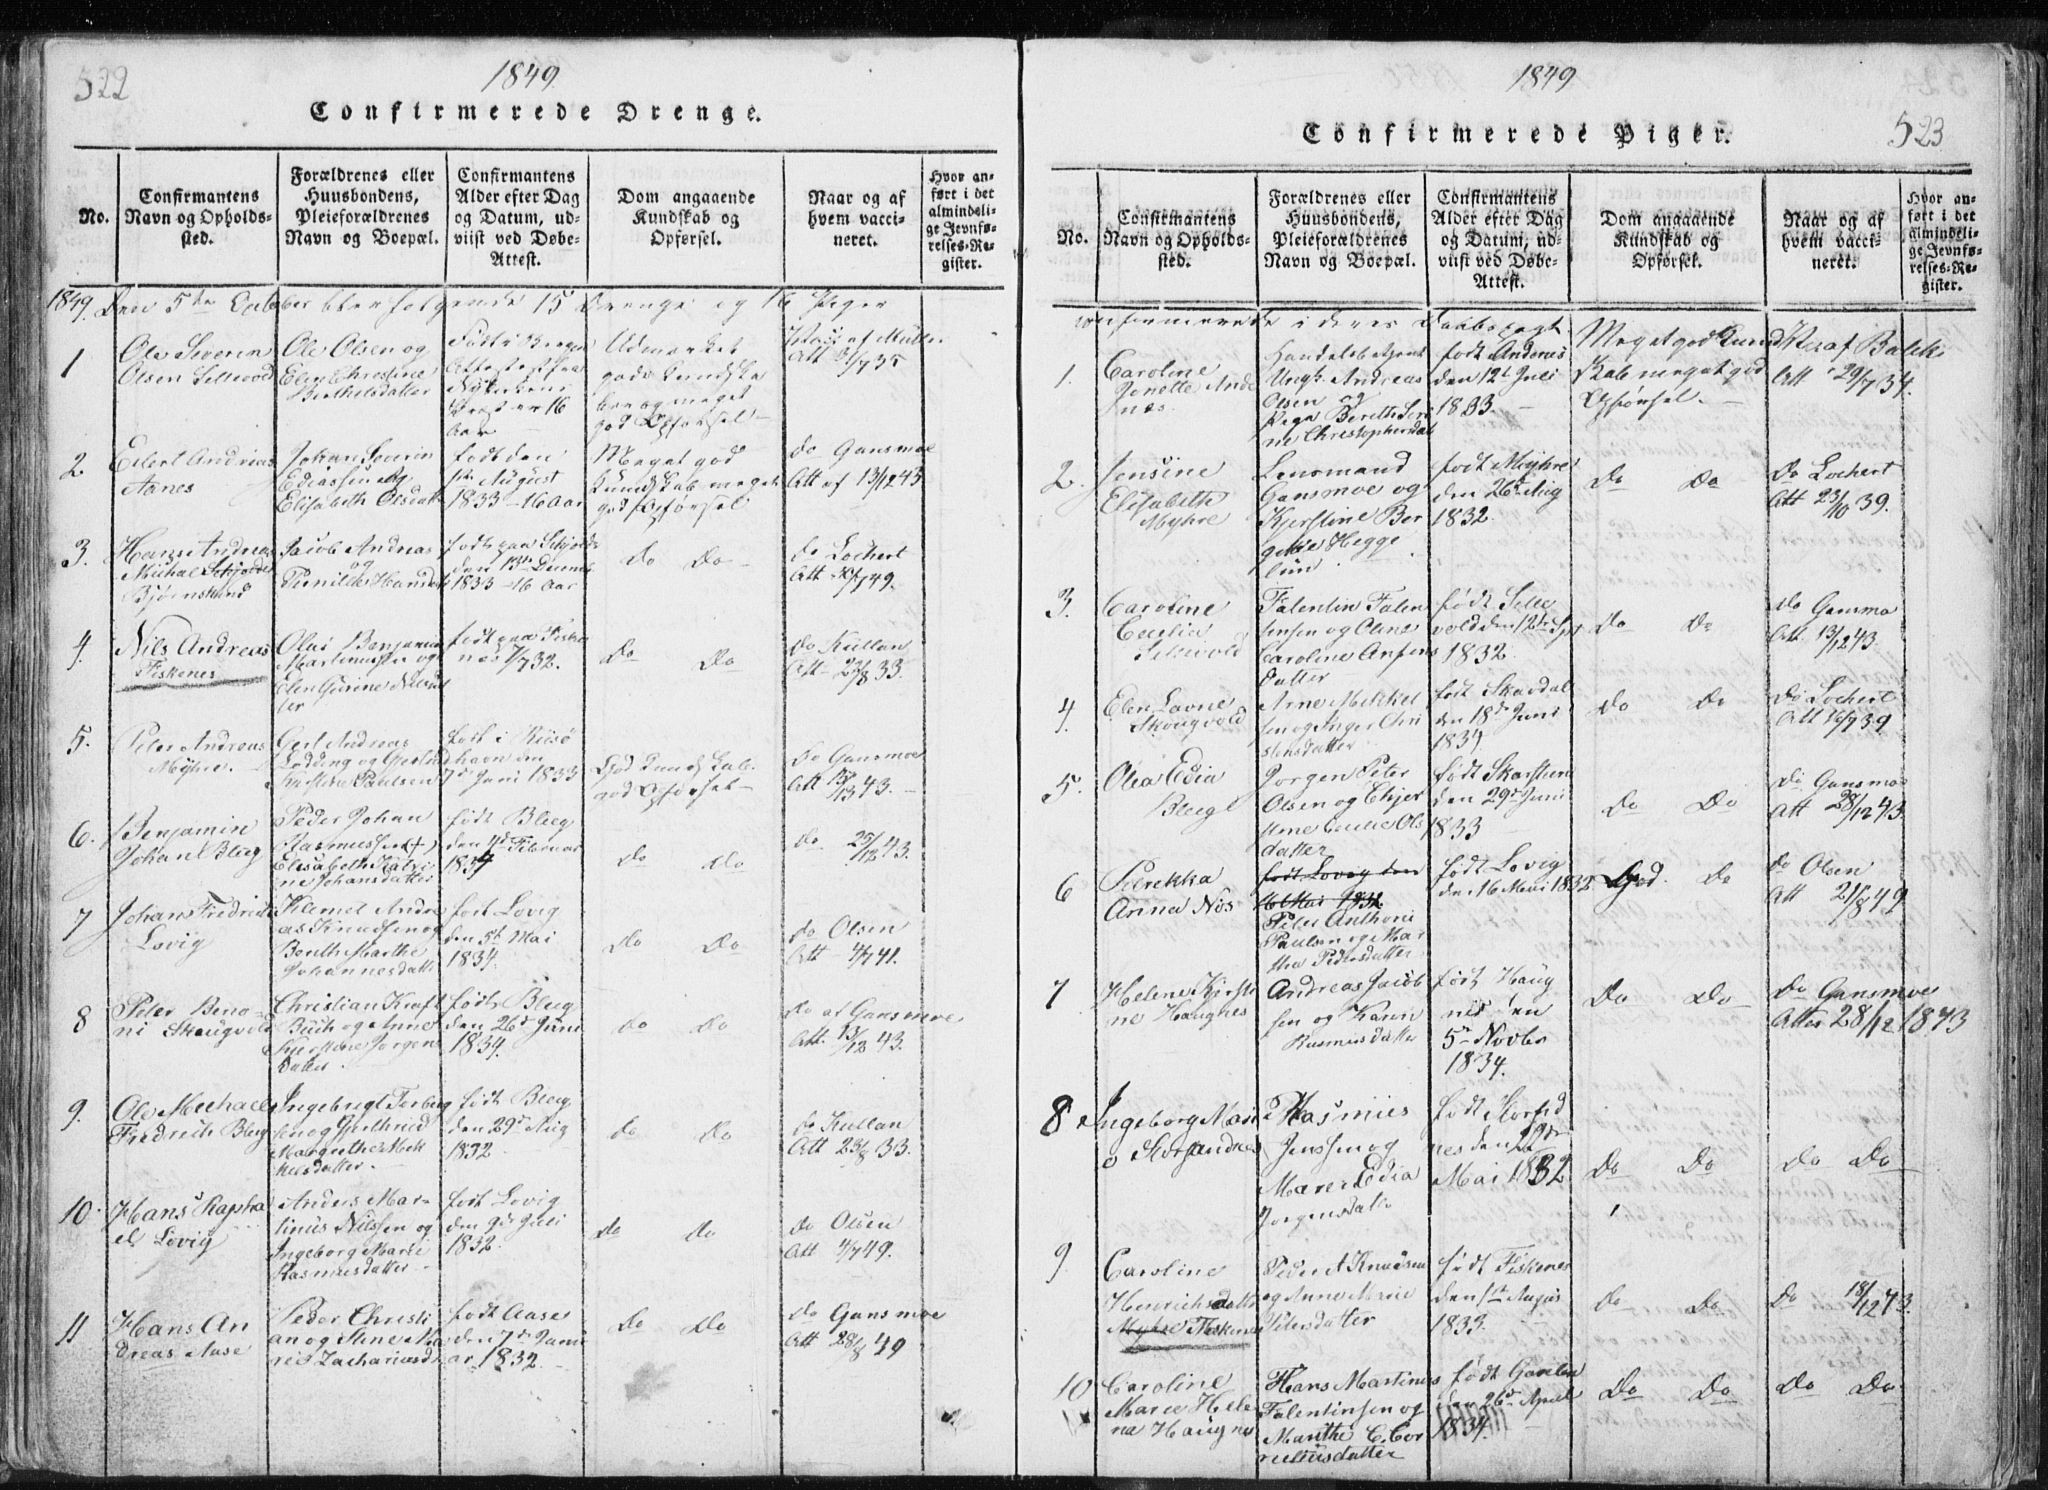 522
1849
Confirmerede Drenge.
No.
Confirmantens
Navn og Opholds-
sted.
Forældrenes eller
Huusbondens,
Pleieforældrenes
Navn og Boepæl.
Confirmantens
Alder efter Dag
og Datum, ud-
viist ved Døbe-
Attest.
Dom angaaende
Kundskab og
Opførsel.
Naar og af
hvem vacci-
neret.
Hvor an-
ført i det
almindeli-
ge Jevnfø-
relses-Re-
gister.
1849. Den 5te October blev følgende 15 Drenge og 16 Piger
1
Ole Severin
Olsen Sellevold
Ole Olsen og
Elen Christine
Berthelsdatter
Født i Bergen
16
Aar
Udmærket
gode Kundska
ber og meget
god Opførsel
Att 3/7 35
2.
Eilert Andreas
Aanes
Johan Severin
Ediassen og
Elisabeth Olsdatt
født den
August
1833 - 16 Aar
Meget god
Kundskab meget
god Opførsel
do Gansmoe
Att af 13/12 43
3.
Hans Andreas
Michal
Bjørnskind
Jacob Andreas
og
Pernille Hansdatt
født paa
den 13de Decemb
1833 - 16 Aar
Do Do
do Lochert
Att 49.
4.
Nils Andreas
Fiskenes
Olus Benjamin
Martinussen og
Elen Gurine Nilsdat
ter
født paa Fiske
nes 7/7 32.
Do Do
do Kullan
Att 23/8 33.
5.
Peter Andreas
Myhre.
Gert Andreas
Lodding og Gertrud
Kirstine Paulsen
født i Riisø
havn den
7de Juni 1833
God Kundskab.
god Opførsel
Do Gansmoe
Att 43.
6.
Benjamin
Johan Bleeg
Peder Johan
Rasmussen (+)
Elisabeth Katri
ne Johansdatter
født Bleeg
den 4de Februar
1834
Do Do
do 25/12 43.
7
Johan Fredrich
Lovig
Klemet Andre
as Knudsen og
Berith Marthe
Johannesdatt
født Lovig
den 5te Mai
1834.
Do Do
do Olsen
Att 4/7 41.
8
Peter Beno-
ni Skougvold
Christian Kraft
Buch og Anne
Kjerstine Jørgens
datter.
født Bleeg
den 26de Juni
1834.
Do Do
do af Gansmoe
Att. 13/12 43.
9.
Ole Michael
Fredrich Bleeg
Ingebrigt Torberg
sen og Gjerthrud
Margrethe Mik
kelsdatter.
født Bleeg
den 29de Aug
1832
Do Do
do Kullan
Att 23/8 33.
10.
Hans Rapha
el Lovig
Anders Mar-
tinus Nilssen og
Ingeborg Marie
Rasmusdatter
født Lovig
den 9de Juli
1832.
Do Do
do Olsen
Att 4/7 49.
11
Hans An
dreas Aase
Peder Christi
an og Stine Ma
rie Zachariasdt
født Aase
den 7de Janu
ar 1832.
Do Do
do Gansmoe
Att 28/8 49
1849
523
Confirmerede Piger.
No.
Confirmantens
Navn og Opholds-
sted.
Forældrenes eller
Huusbondens,
Pleieforældrenes
Navn og Boepæl.
Confirmantens
Alder efter Dag
og Datum, ud-
viist ved Døbe-
Attest.
Dom angaaende
Kundskab og
Opførsel.
Naar og af
hvem vacci-
neret.
Hvor an-
ført i det
almindeli-
ge Jevnfø-
relses-Re-
gister.
confirmerede i deres Daabspagt.
1.
Caroline
Jonette Ande
næs
Handelsbetjent
Ungk. Andreas
Olsen og
Pige Bereth Seri
ne Christophersdat
født Andenes
den 12te Juli
1833.
Meget god Kund
skab meget god
Opførsel.
Vac af Balcke
Att 29/7 34.
2.
Jensine
Elisabeth
Myhre
Lensmand
Gansmoe og
Kjerstine Ber
gitte Hegge
lün
født Myhre
den 26de Aug
1832.
Do Do
Do Lochert
Att 23/10 39.
3.
Caroline
Cecilia
Sellevold
Falentin Falen
tinsen og Oline
Caroline Arfens
datter
født Selle
vold den 12te Spt
1832
Do Do
Do Gansmo
Att. 13/12 43.
4.
Elen Lovne
Skougvold
Arne Mikkel
sen og Inger Chri
stensdatter
født Skavdal
den 18de Juni
1834
Do Do
Do Lochert
Att 16/7 39
5.
Olea Edia
Bleeg
Jørgen Peter
Olsen og Chjer
stine Cecilie Ols
datter
født Skarsteen
den 29de Juni
1833
Do Do
do Gansmoe
Att 28/12 43.
6
Perekka
Anna Nøs
født Lovig den
16de Mai 1832.
Peter Anthoni
Paulsen og Mar
tha Pedersdatter
født Lovig
den 16 Mai 1832
God. Do
do Olsen
Att 21/8 49
7
Helene Kirsti
ne Haugnes
Andreas Jacob
sen og Karen
Rasmusdatter
født Haug
nes den
5te Novbr
1834.
Do Do
Do Gansmoe
Attes 28/12 1843
8
Ingeborg Mari
e Storsandnes
Rasmus
Jenssen og
Maren Edia
Jørgensdatte
født Storsand
nes den 22de
Mai 1832
Do Do
Do Do
9
Caroline
Henrichsdatte
Myhre Fiskenes
Peder A Knudsen
og Anne Marie
Petersdatter
født Fiskenes
den 1ste August
1833.
Do Do
Do 18/12 43.
10
Caroline
Marie Hele
na Haugnes
Hans Martinus
Falentinsen og
Marthe C. Cor
neliusdatter
født Gavelen
den 26de April
1834.
Do Do
Do Do